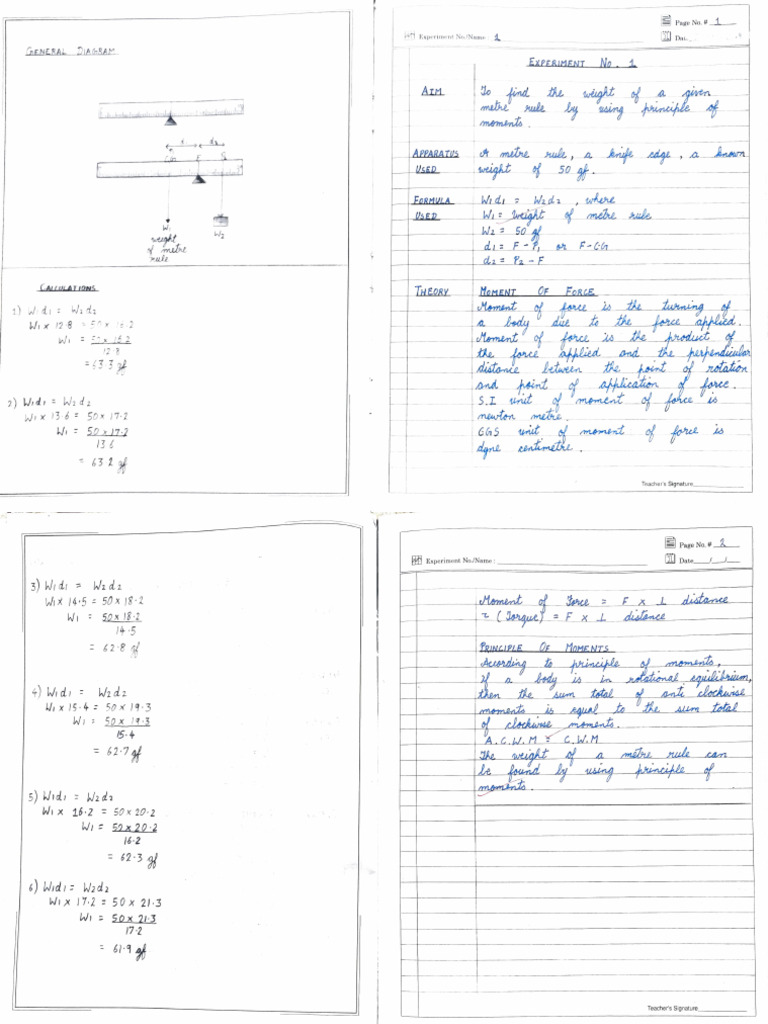 GENERAL DIAGRAM
d₁
d₂
CG
F
S
W₁
weight
of metre
rule
W₂
CALCULATIONS
1) W₁d₁ = W₂d₂
W₁ × 12.8 = 50 × 16.2
W₁ = 50 × 16.2
12.8
= 63.3 gf
2) W₁d₁ = W₂d₂
W₁ × 13.6 = 50 × 17.2
W₁ = 50 × 17.2
13.6
= 63.2 gf
Page No. # 1
Experiment No./Name : 1
EXPERIMENT No. 1
AIM
To find the weight of a given
metre rule by using principle of
moments.
APPARATUS
USED
A metre rule, a knife edge, a known
weight of 50 gf.
FORMULA
USED
W₁d₁ = W₂d₂, where
W₁ = Weight of metre rule
W₂ = 50 gf
d₁ = F - P₁ or F-CG
d₂ = P₂ - F
THEORY
MOMENT OF FORCE
Moment of force is the turning of
a body due to the force applied.
Moment of force is the product of
the force applied and the perpendicular
distance between the point of rotation
and point of application of force.
S.I unit of moment of force is
newton metre.
CGS unit of moment of force is
dyne centimetre.
Teacher's Signature
3) W₁d₁ = W₂d₂
W₁ × 14.5 = 50 × 18.2
W₁ = 50 × 18.2
14.5
= 62.8 gf
4) W₁d₁ = W₂d₂
W₁ × 15.4 = 50 × 19.3
W₁ = 50 × 19.3
15.4
= 62.7 gf
5) W₁d₁ = W₂d₂
W₁ × 16.2 = 50 × 20.2
W₁ = 50 × 20.2
16.2
= 62.3 gf
6) W₁d₁ = W₂d₂
W₁ × 17.2 = 50 × 21.3
W₁ = 50 × 21.3
17.2
= 61.9 gf
Page No. # 2
Experiment No./Name :
Date / /
Moment of Force = F × ⊥ distance
= (Torque) = F × ⊥ distance
PRINCIPLE OF MOMENTS
According to principle of moments,
If a body is in rotational equilibrium,
then the sum total of anti clockwise
moments is equal to the sum total
of clockwise moments.
A.C.W.M = C.W.M
The weight of a metre rule can
be found by using principle of
moments.
Teacher's Signature